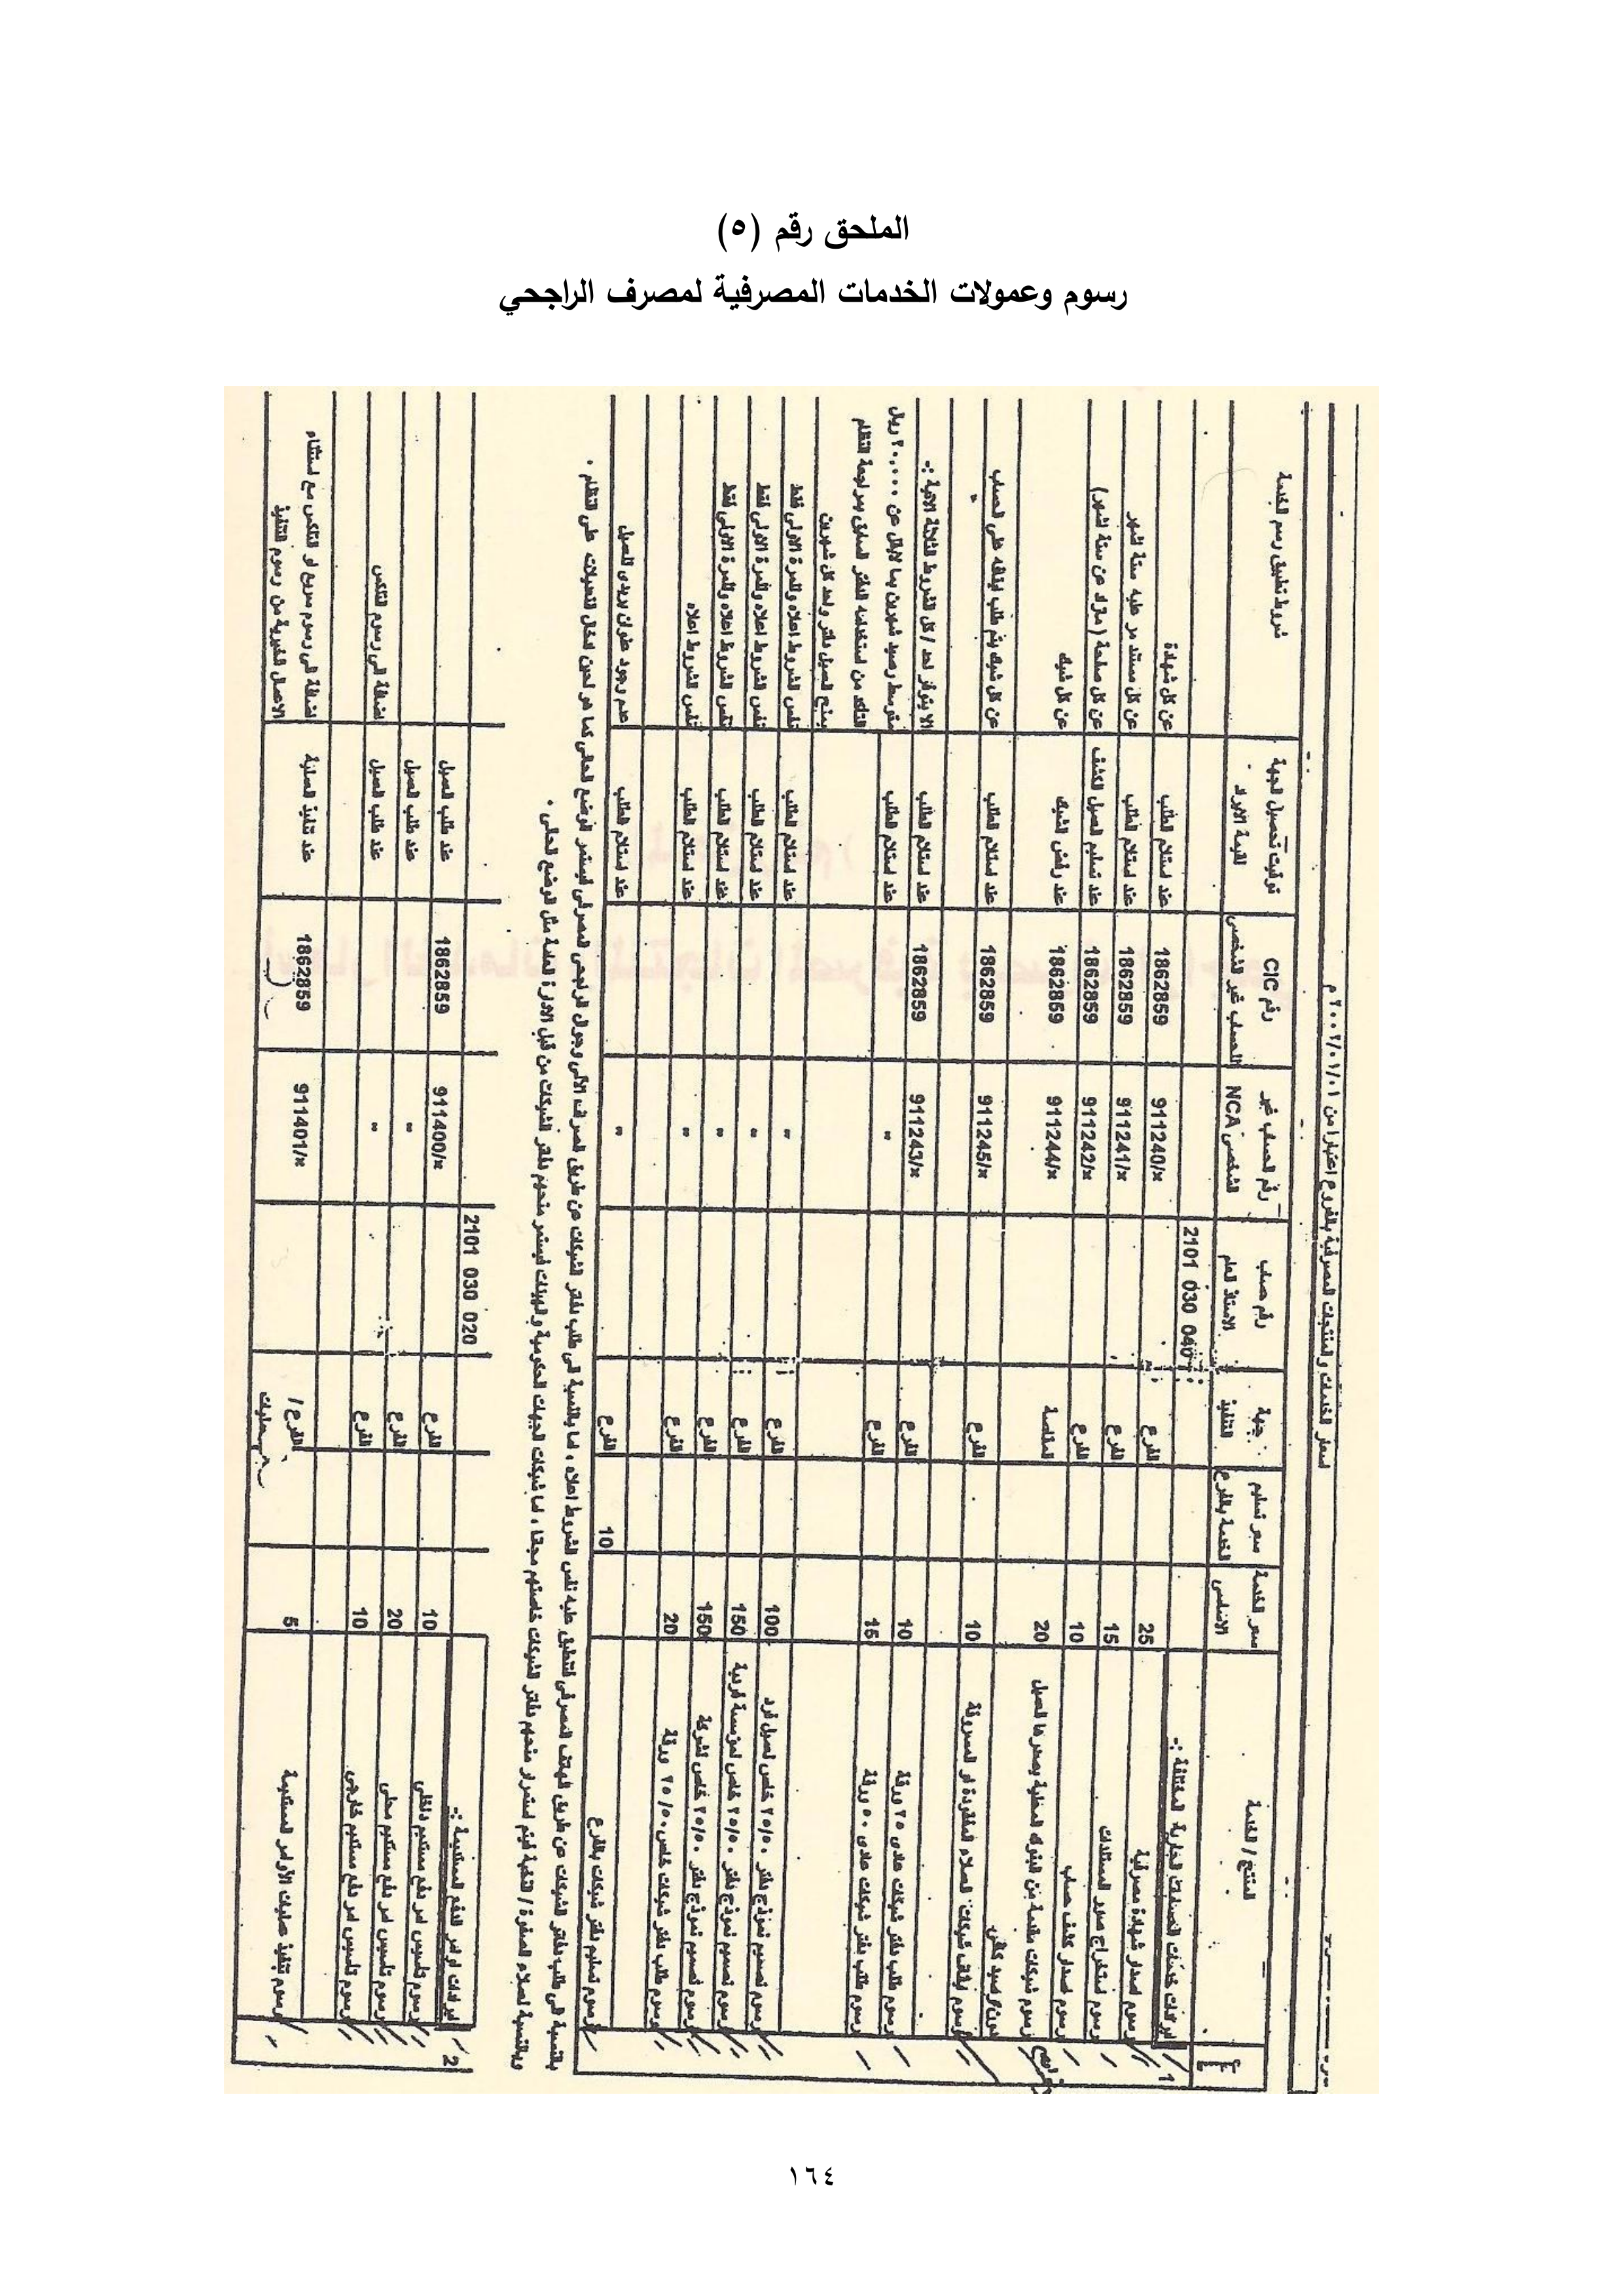 الملحق رقم (٥)
رسوم وعمولات الخدمات المصرفية لمصرف الراجحي
اسعار الخدمات والمنتجات المصرفية بالفروع اعتبارا من ٢٠٠٢/٠١/٠١ م
المنتج / الخدمة
سعر الخدمة الاساسى
سعر تسليم الخدمة بالفرع
جهة التنفيذ
رقم حساب الاستاذ العام
رقم الحساب غير الشخصى NCA
رقم CIC للحساب غير الشخصى
توقيت تحصيل الجهة لقيمة الايراد
شروط تطبيق رسم الخدمة
1 ايرادات خدمات الحسابات الجارية المختلفة :- 2101 030 040
رسوم اصدار شهادة مصرفية 25 الفرع 911240/x 1862859 عند استلام الطلب عن كل شهادة
رسوم استخراج صور المستندات 15 الفرع 911241/x 1862859 عند استلام الطلب عن كل مستند مر عليه ستة اشهر
رسوم اصدار كشف حساب 10 الفرع 911242/x 1862859 عند تسليم العميل الكشف عن كل صفحة (مازاد عن ستة اشهر)
رسوم شيكات مقدمة من البنوك المحلية يصدرها العميل بدون رصيد كافى 20 المقاصة 911244/x 1862859 عند رفض الشيك عن كل شيك
رسوم ايقاف شيكات العملاء المفقودة او المسروقة 10 الفرع 911245/x 1862859 عند استلام الطلب عن كل شيك يتم طلب ايقافه على الحساب
رسوم طلب دفتر شيكات عادى ٢٥ ورقة 10 الفرع 911243/x 1862859 عند استلام الطلب الا يتوفر احد / كل الشروط الثلاثة الاتية :-
رسوم طلب دفتر شيكات عادى ٥٠ ورقة 15 الفرع " عند استلام الطلب متوسط رصيد شهرين بما لايقل عن ٢٠,٠٠٠ ريال
التأكد من استخدامه الدفتر السابق بمراجعة النظام
يمنح العميل دفتر واحد كل شهرين
رسوم تصميم نموذج دفتر ٢٥/٥٠ خاص لعميل فرد 100 الفرع " عند استلام الطلب نفس الشروط اعلاه وللمرة الاولى فقط
رسوم تصميم نموذج دفتر ٢٥/٥٠ خاص لمؤسسة فردية 150 الفرع " عند استلام الطلب نفس الشروط اعلاه وللمرة الاولى فقط
رسوم تصميم نموذج دفتر ٢٥/٥٠ خاص لشركة 150 الفرع " عند استلام الطلب نفس الشروط اعلاه وللمرة الاولى فقط
رسوم طلب دفتر شيكات خاص ٢٥/٥٠ ورقة 20 الفرع " عند استلام الطلب نفس الشروط اعلاه
رسوم تسليم دفتر شيكات بالفرع 10 الفرع " عند استلام الطلب عدم وجود عنوان بريدى للعميل
بالنسبة الى طلب دفاتر الشيكات عن طريق الهاتف المصرفى فتنطبق عليه نفس الشروط اعلاه ، اما بالنسبة الى طلب دفتر الشيكات عن طريق الصراف الآلى وجوال الراجحى المصرفى فيستمر الوضع الحالى كما هو لحين ادخال التعديلات على النظام .
وبالنسبة لعملاء الصفوة / النخبة فيتم استمرار منحهم دفاتر الشيكات خاصتهم مجانا ، اما شيكات الجهات الحكومية والهيئات فيستمر منحهم دفاتر الشيكات من قبل الادارة العامة مثل الوضع الحالى .
2 ايرادات اوامر الدفع المستديمة :- 2101 030 020
رسوم تأسيس امر دفع مستديم داخلى 10 الفرع 911400/x 1862859 عند طلب العميل
رسوم تأسيس امر دفع مستديم محلى 20 الفرع " عند طلب العميل
رسوم تأسيس امر دفع مستديم خارجى 10 الفرع " عند طلب العميل اضافة الى رسوم التلكس
رسوم تنفيذ عمليات الأوامر المستديمة 5 الفرع / 911401/x 1862859 عند تنفيذ العملية اضافة الى رسوم سريع او التلكس مع استثناء
الاعمال الخيرية من رسوم التنفيذ
١٦٤